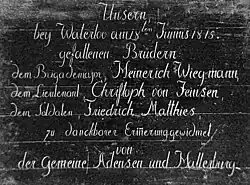 Unsern,
bey Waterloo am 18ten Junius 1815.
gefallenen Brüdern
dem Brigademajor, Heinerich Wiegmann,
dem Lieutenant, Christoph von Heinsen,
dem Soldaten, Friedrich Matthies
zu danckbarer Erinnerung gewidmet
von
der Gemeine Adensen und Hallerburg.